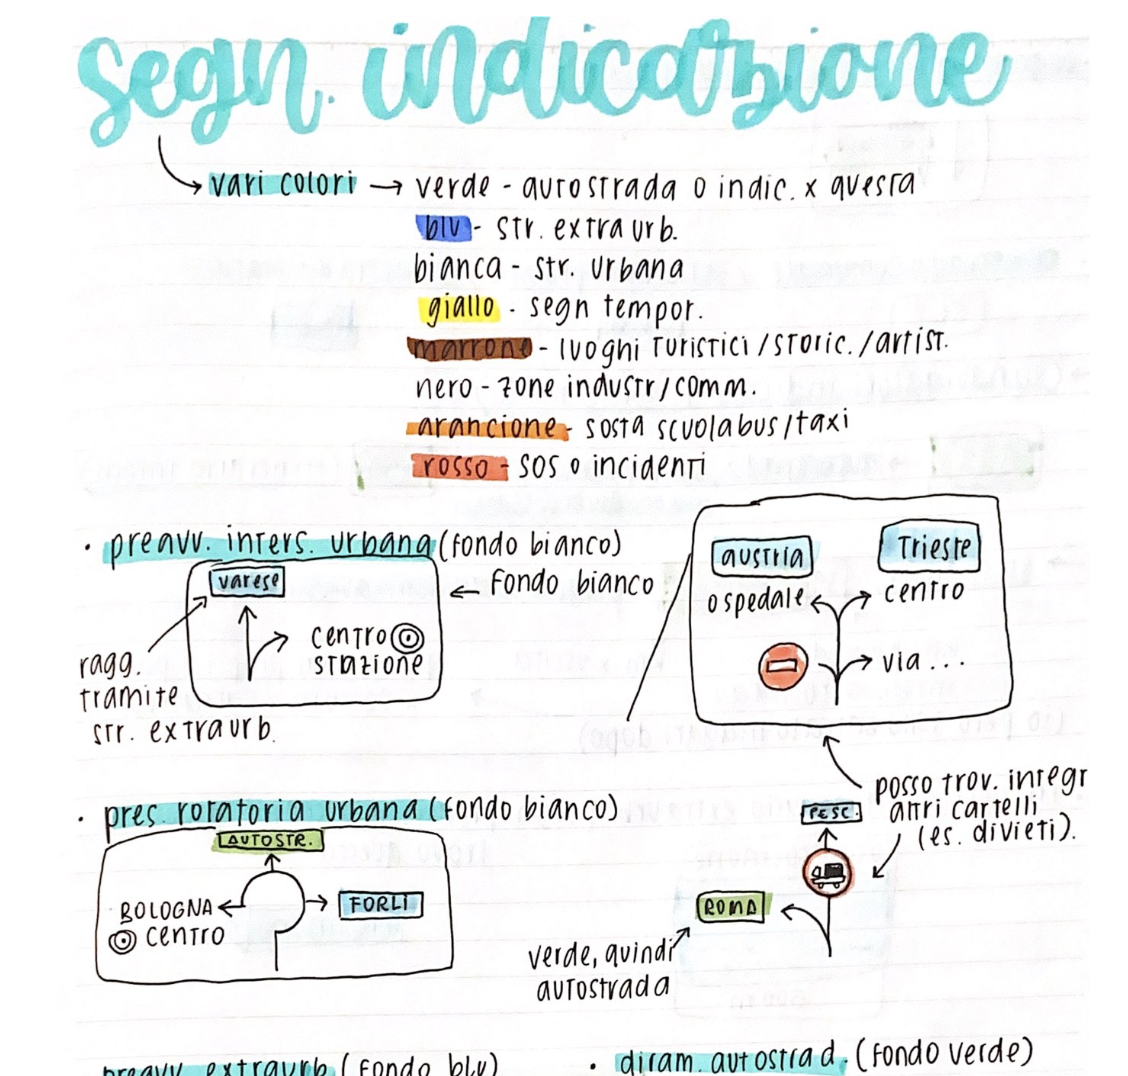 segn. indicazione
vari colori → verde - autostrada o indic. x questa
blu - str. extraurb.
bianca - str. urbana
giallo - segn tempor.
marrone - luoghi turistici/storic./artist.
nero - zone industr/comm.
arancione - sosta scuolabus/taxi
rosso - sos o incidenti
• preavv. inters. urbana (fondo bianco)
varese
← fondo bianco
centro
stazione
ragg.
tramite
str. extraurb.
austria
Trieste
ospedale
centro
via ...
posso trov. integr
altri cartelli
(es. divieti).
• pres. rotatoria urbana (fondo bianco)
AUTOSTR.
BOLOGNA
centro
FORLÌ
PESC.
ROMA
verde, quindi
autostrada
preavv. extraurb. (fondo blu)
• diram. autostrad. (fondo verde)